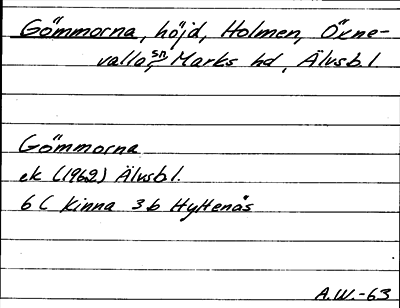 Gömmorna, höjd, Holmen, Öxne-
valla sn, Marks hd, Älvsb. l
Gömmorna
ek (1962) Älvsb l.
6 C Kinna 3 b Hyltenäs
A.W.-63